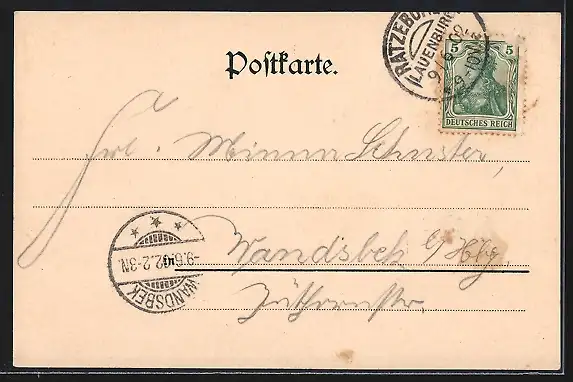 Postkarte.
RATZEBURG
(LAUENBURG)
9/6 02
9-10V.
5 5
DEUTSCHES REICH
Frl. Minna Schuster,
in Wandsbek b/ Hbg.
-9.6.02.2-3N
WANDSBEK